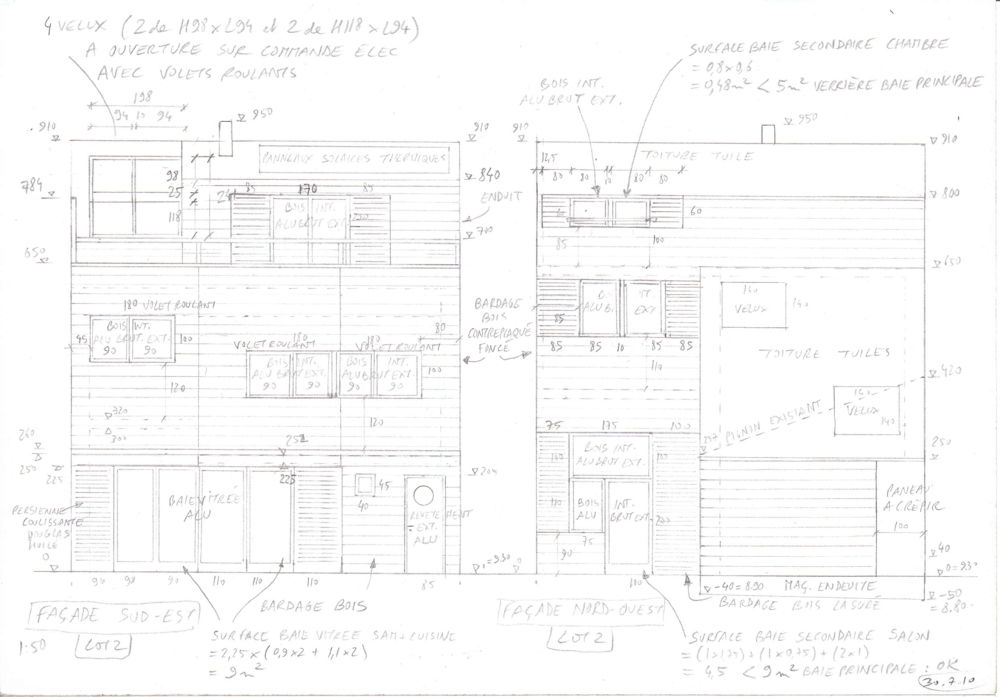 4 VELUX (2 de H98 x L94 et 2 de H118 x L94)
A OUVERTURE SUR COMMANDE ELEC
AVEC VOLETS ROULANTS
198
94 10 94
950
910
910
PANNEAUX SOLAIRES THERMIQUES
98
25
118
784
85 170 85
BOIS INT.
ALU BRUT EXT.
840
ENDUIT
700
650
180 VOLET ROULANT
BOIS INT.
ALU BRUT EXT.
90 90
45
100
120
VOLET ROULANT
180
VOLET ROULANT
180
80
BOIS INT.
ALU BRUT EXT.
90 90
BOIS INT.
ALU BRUT EXT.
90 90
100
120
320
300
260
250
225
252
225
204
BAIE VITRÉE
ALU
45
40
REVETEMENT
EXT.
ALU
PERSIENNE
COULISSANTE
DOUGLAS
HUILE
0
0=930
90 90 90 110 110 110
85
FAÇADE SUD-EST
LOT 2
1-50
BARDAGE BOIS
SURFACE BAIE VITREE SAM+CUISINE
= 2,25 x (0,9x2 + 1,1x2)
= 9m²
BARDAGE
BOIS
CONTREPLAQUÉ
FONCÉ
SURFALE BAIE SECONDAIRE CHAMBRE
= 0,8 x 0,6
= 0,48m² < 5m² VERRIÈRE BAIE PRINCIPALE
BOIS INT.
ALU BRUT EXT.
910
950
910
TOITURE TUILE
12,5
80 80 10 80 80
60
800
85
100
650
140
VELUX
140
85
85 85 10 85 85
110
TOITURE TUILES
420
140
VELUX
140
PIGNON EXISTANT
75 175 100
BOIS INT.
ALU BRUT EXT.
BOIS
ALU
INT.
BRUT EXT.
75
90
250
PANEAU
A CRÉPIR
100
40
0=930
100
-40=890 MAG. ENDEUITE
-50
= 8.80
BARDAGE BOIS LASURÉ
FAÇADE NORD-OUEST
LOT 2
SURFACE BAIE SECONDAIRE SALON
= (1x1,75) + (1x0,75) + (2x1)
= 4,5 < 9m² BAIE PRINCIPALE : OK
30.7.10